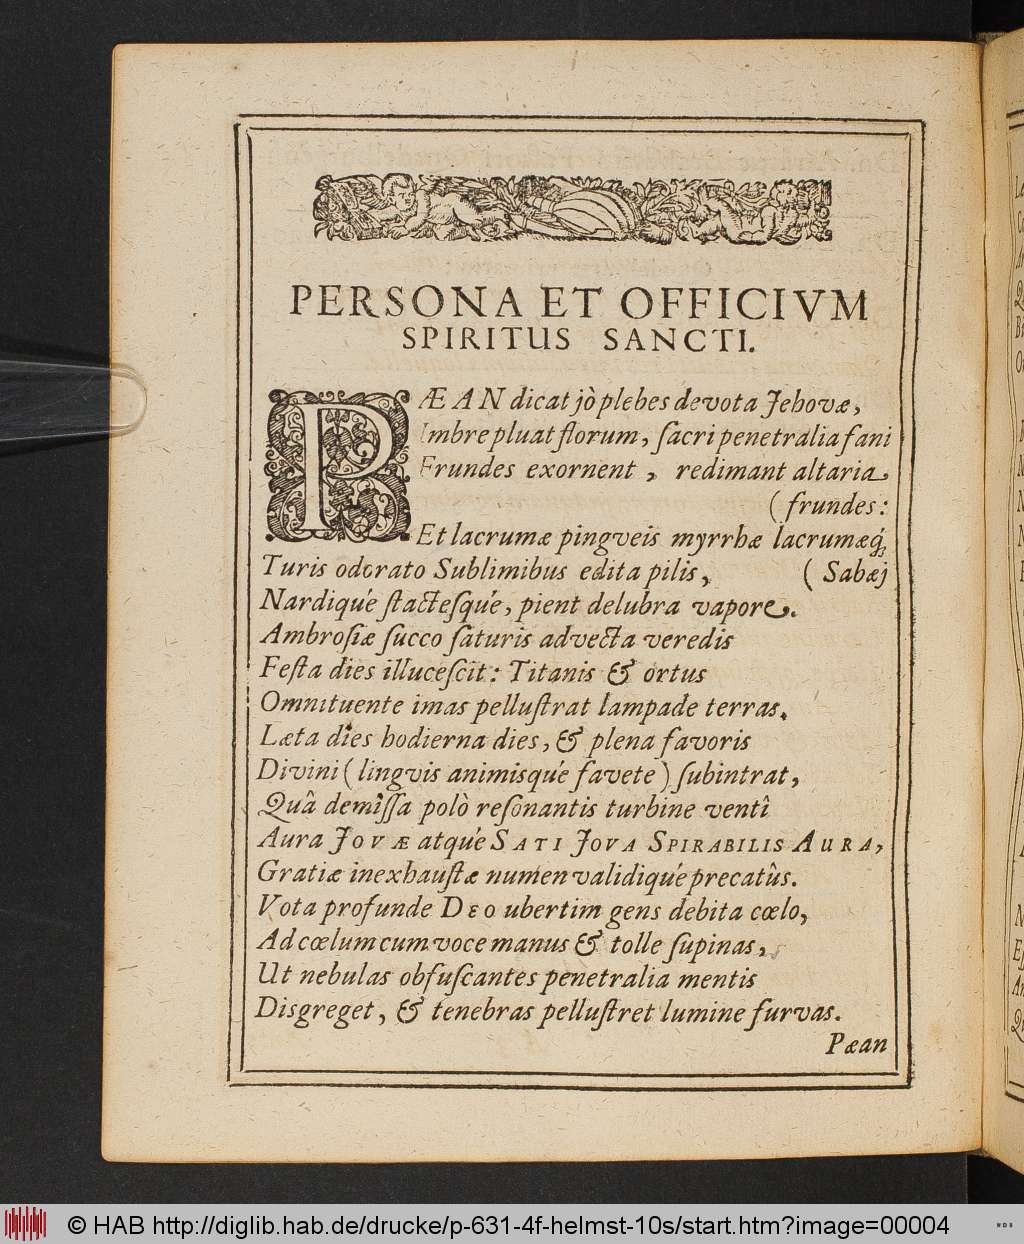 PERSONA ET OFFICIVM
SPIRITUS SANCTI.
PÆAN dicat jò plebes devota Jehovæ,
Imbre pluat florum, ſacri penetralia fani
Frundes exornent, redimant altaria
(frundes:
Et lacrumæ pingveis myrrhæ lacrumæq́;
Turis odorato Sublimibus edita pilis, (Sabæj
Nardiqúe ſtacteſqúe, pient delubra vapore.
Ambroſiæ ſucco ſaturis advecta veredis
Feſta dies illuceſcit: Titanis & ortus
Omnituente imas pelluſtrat lampade terras.
Læta dies hodierna dies, & plena favoris
Divini (lingvis animisqúe favete) ſubintrat,
Quâ demîſſa polò reſonantis turbine ventî
Aura JOVÆ atqúe SATI JOVA SPIRABILIS AURA,
Gratiæ inexhauſtæ numen validiqúe precatûs.
Vota profunde DEO ubertim gens debita cœlo,
Ad cœlum cum voce manus & tolle ſupinas,
Ut nebulas obfuſcantes penetralia mentis
Disgreget, & tenebras pelluſtret lumine furvas.
Pæan
© HAB http://diglib.hab.de/drucke/p-631-4f-helmst-10s/start.htm?image=00004